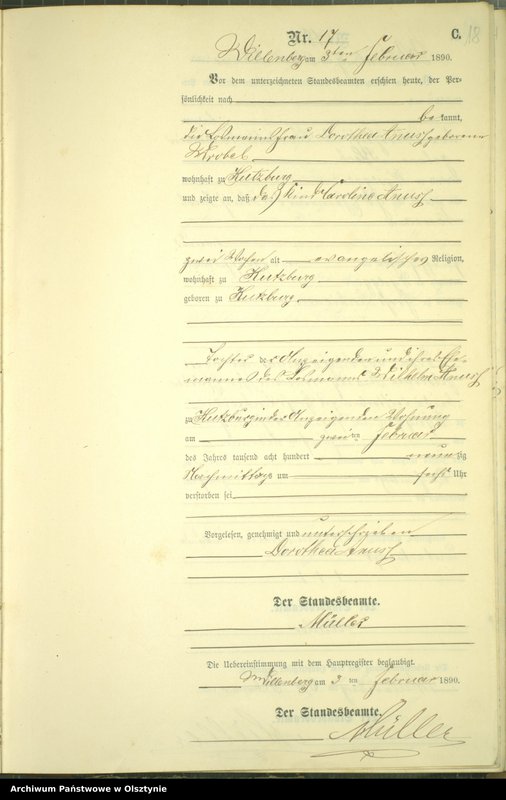 Nr. 17
C.
18
Willenberg am 3ten Februar 1890.
Vor dem unterzeichneten Standesbeamten erschien heute, der Per-
sönlichkeit nach
be kannt,
die Losmannsfrau Dorothea Anusch geborene
Wrobel
wohnhaft zu Kutzburg
und zeigte an, daß das Kind Caroline Anusch
zwei Wochen alt evangelischer Religion,
wohnhaft zu Kutzburg
geboren zu Kutzburg
Tochter der Anzeigenden und ihres Ehe-
mannes des Losmanns Wilhelm Anusch
zu Kutzburg in der Anzeigenden Wohnung
am zweiten Februar
des Jahres tausend acht hundert neun zig
Nachmittags um sechs Uhr
verstorben sei
Vorgelesen, genehmigt und unterschrieben
Dorothea Anusch
Der Standesbeamte.
Müller
Die Uebereinstimmung mit dem Hauptregister beglaubigt.
Willenberg am 3 ten Februar 1890.
Der Standesbeamte.
Müller
Archiwum Państwowe w Olsztynie